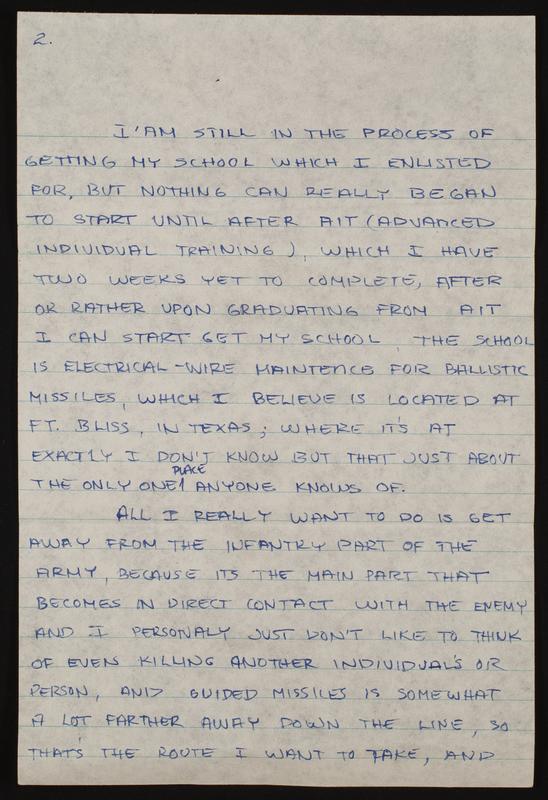 2.
I'AM STILL IN THE PROCESS OF
GETTING MY SCHOOL WHICH I ENLISTED
FOR, BUT NOTHING CAN REALLY BEGAN
TO START UNTIL AFTER AIT (ADVANCED
INDIVIDUAL TRAINING), WHICH I HAVE
TWO WEEKS YET TO COMPLETE, AFTER
OR RATHER UPON GRADUATING FROM AIT
I CAN START GET MY SCHOOL, THE SCHOOL
IS ELECTRICAL-WIRE MAINTENCE FOR BALLISTIC
MISSILES, WHICH I BELIEVE IS LOCATED AT
FT. BLISS, IN TEXAS; WHERE IT'S AT
EXACTLY I DON'T KNOW BUT THAT JUST ABOUT
PLACE
THE ONLY ONE ANYONE KNOWS OF.
ALL I REALLY WANT TO DO IS GET
AWAY FROM THE INFANTRY PART OF THE
ARMY, BECAUSE ITS THE MAIN PART THAT
BECOMES IN DIRECT CONTACT WITH THE ENEMY
AND I PERSONALY JUST DON'T LIKE TO THINK
OF EVEN KILLING ANOTHER INDIVIDUAL'S OR
PERSON, AND GUIDED MISSILES IS SOMEWHAT
A LOT FARTHER AWAY DOWN THE LINE, SO
THAT'S THE ROUTE I WANT TO TAKE, AND